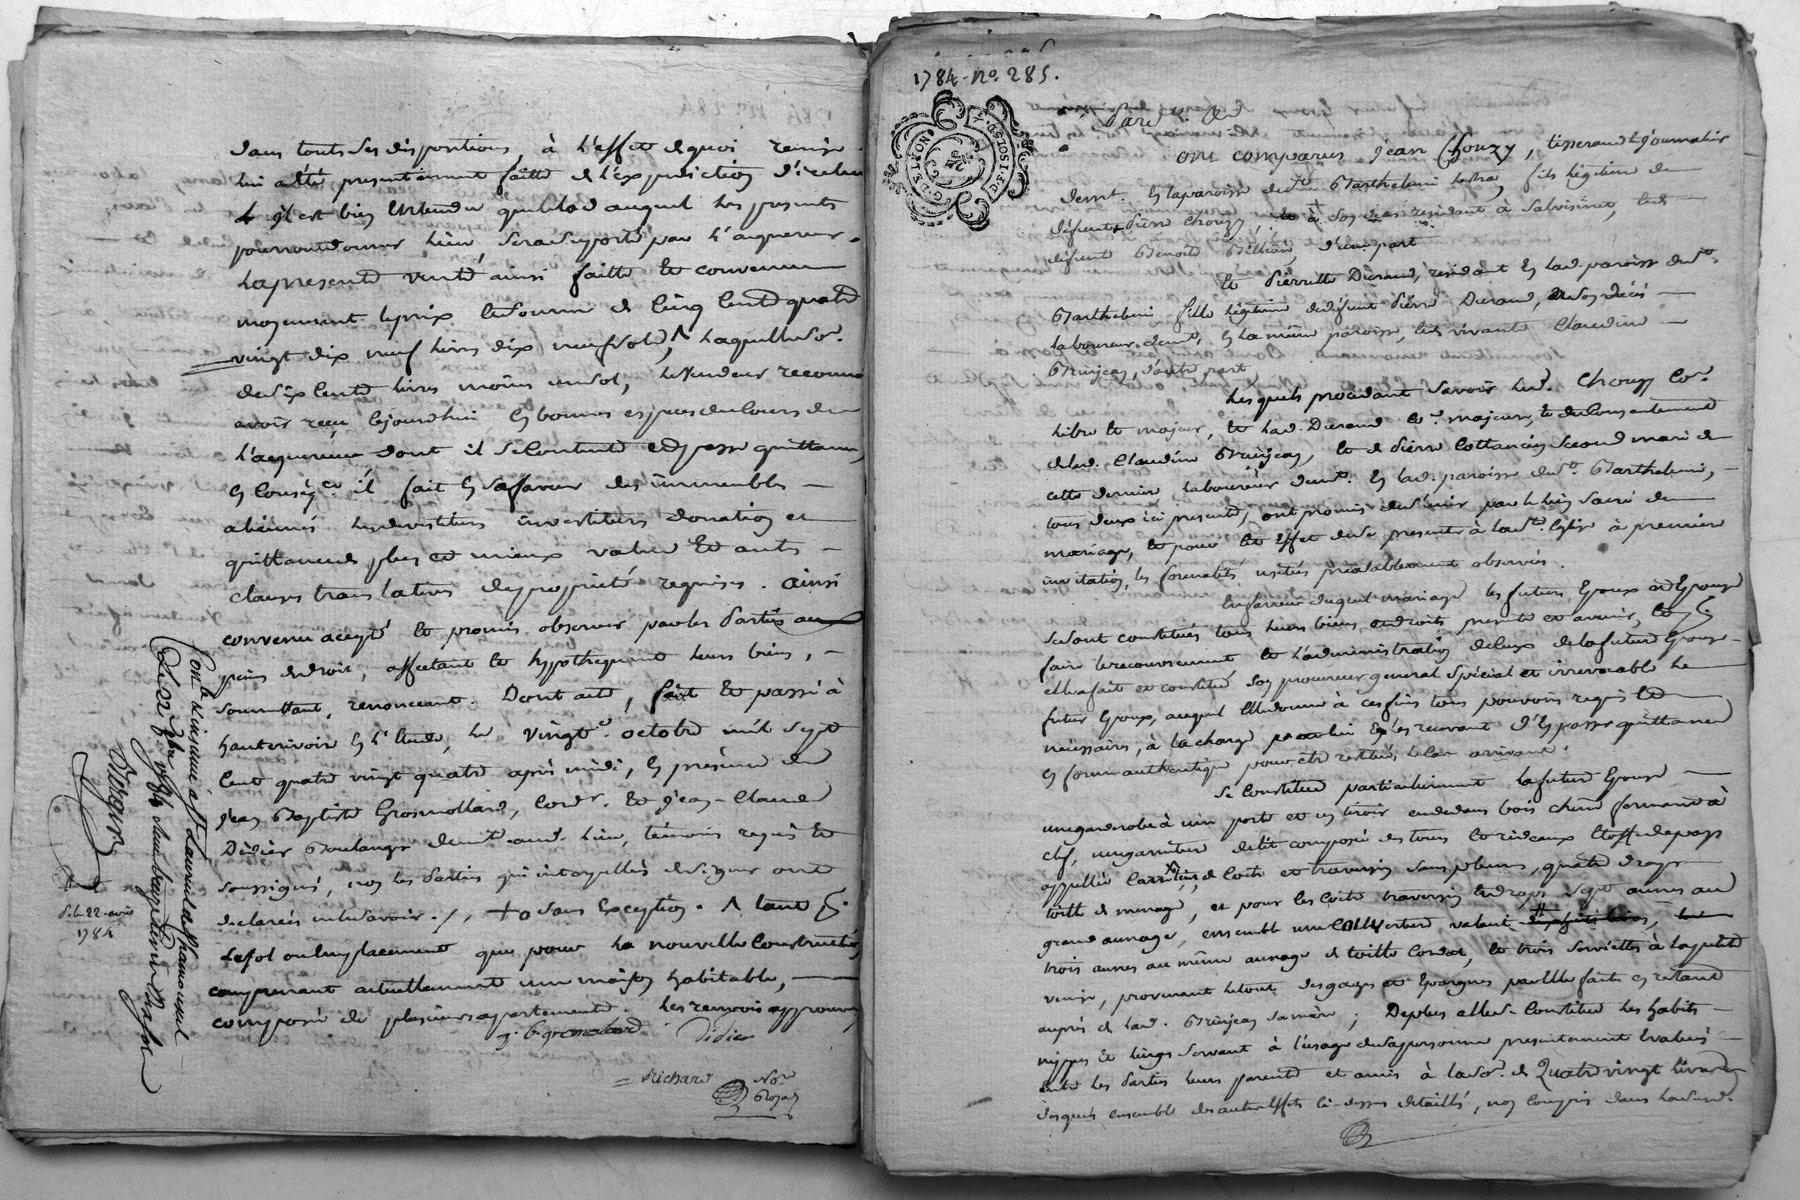 dans touts ses dispositions, à l'effet de quoi remise
lui a été presentement faitte de l'expedition d'icelui
il est bien entendu que le lod auquel les presents
pourront donner lieu, sera suporté par l'aquereur.
La presente vente ainsi faitte et convenue
moyennant le prix et somme de cinq cents quatre
vingt dix neuf livres dix neuf sols, Λ laquelle so.
de six cents livres moins un sol, le vendeur reconnoit
avoir reçu cejourd'hui en bonnes especes du cours de
l'aquereur dont il se contente et passe quittance,
en conséq.ce il fait en sa faveur des immeubles
alienés les devestitures investitures donation et
quittance de plus ou mieux value et autres
clauses translatives de proprieté requises. Ainsi
convenu accepté et promis observer par les parties aux
peines de droit, affectant et hypothequant leurs biens,
soumettant, renonceant. Dont acte, fait et passé à
hauterivoire en l'étude, le vingt octobre mil sept
cent quatre vingt quatre après midi, en présence de
Jean Baptiste Grosmollard, cord.r et Jean-Claude
Didier boulanger dem.t aud. lieu, témoins requis et
soussignés, non les parties qui interpellées de signer ont
déclarées ne le savoir. /. + o Sans exception. Λ tant p.
le sol ou emplacement que pour la nouvelle construction
comprenant actuellement une maison habitable,
composée de plusieurs appartements. Les renvois approuvés
J. b grosmolard Didier
Richard No.re Royal
Cont.lé & insinué à St Laurent de Chamousset
1784
1784
1784. No. 285.
GE. LYON
D.F. 1 SOL 8 D.
Pard.t &c
Ont comparus Jean Chouzy, tisserand & journalier
demt. en la paroisse de St. Barthelemi Lestra, fils légitime de
défunt Pierre Chouzy, résidant à Salvisinet, et de
défunte Benoite Billiar, d'une part
et Pierrette Durand, résidant en lad. paroisse de St.
Barthelemi fille légitime de défunt Pierre Durand, à son décès
laboureur demt. en la même paroisse, et de vivante Claudine
Brinjean, d'autre part,
Lesquels procédant savoir led. Chouzy co.
libre et majeur, et lad. Durand co. majeure, et du consentement
de lad. Claudine Brinjean, et de Pierre Cottancin second mari de
cette derniere laboureur demt. en lad. paroisse de St. Barthelemi,
tous deux ici presents, ont promis de s'unir par le lien sacré de
mariage, et pour cet effet de se presenter à la Ste. Eglise à premiere
invitation, les formalités usitées préalablement observées.
En faveur duquel mariage les futurs Epoux et Epouse
se sont constitués tous leurs biens et droits presents et avenir, et p.
faire le recouvrement et l'administration de ceux de la future Epouse
elle a fait et constitué son procureur general spécial et irrevocable le
futur Epoux, auquel elle donne à ces fins tous pouvoirs requis et
nécessaires, à la charge par lui en les recevant d'en passer quittance
en forme authentique pour être restitués le cas arrivant.
Se constitue particulierement la future Epouse
une garderobe à une porte et un tiroir en dedans bois chene fermant à
clef, une garniture de lit composée de tours et rideaux étoffe de pays
appellée, de coite et traversin sans plumes, quatre draps
toille de menage, et pour les coite traversin et draps sept aunes au
grand aunage, ensemble une couverture valant,
trois aunes au même aunage de toille cordat, et trois serviettes à la petite
venise, provenant le tout des gages et épargnes par elle faits en restant
auprès de lad. Brinjean sa mere; De plus elle se constitue les habits
nippes et linges servant à l'usage de sa personne presentement évalués
entre les parties leurs parents et amis à la so. de Quatre vingt livres
desquels ensemble des autres effets ci-dessus détaillés, non compris dans la so.